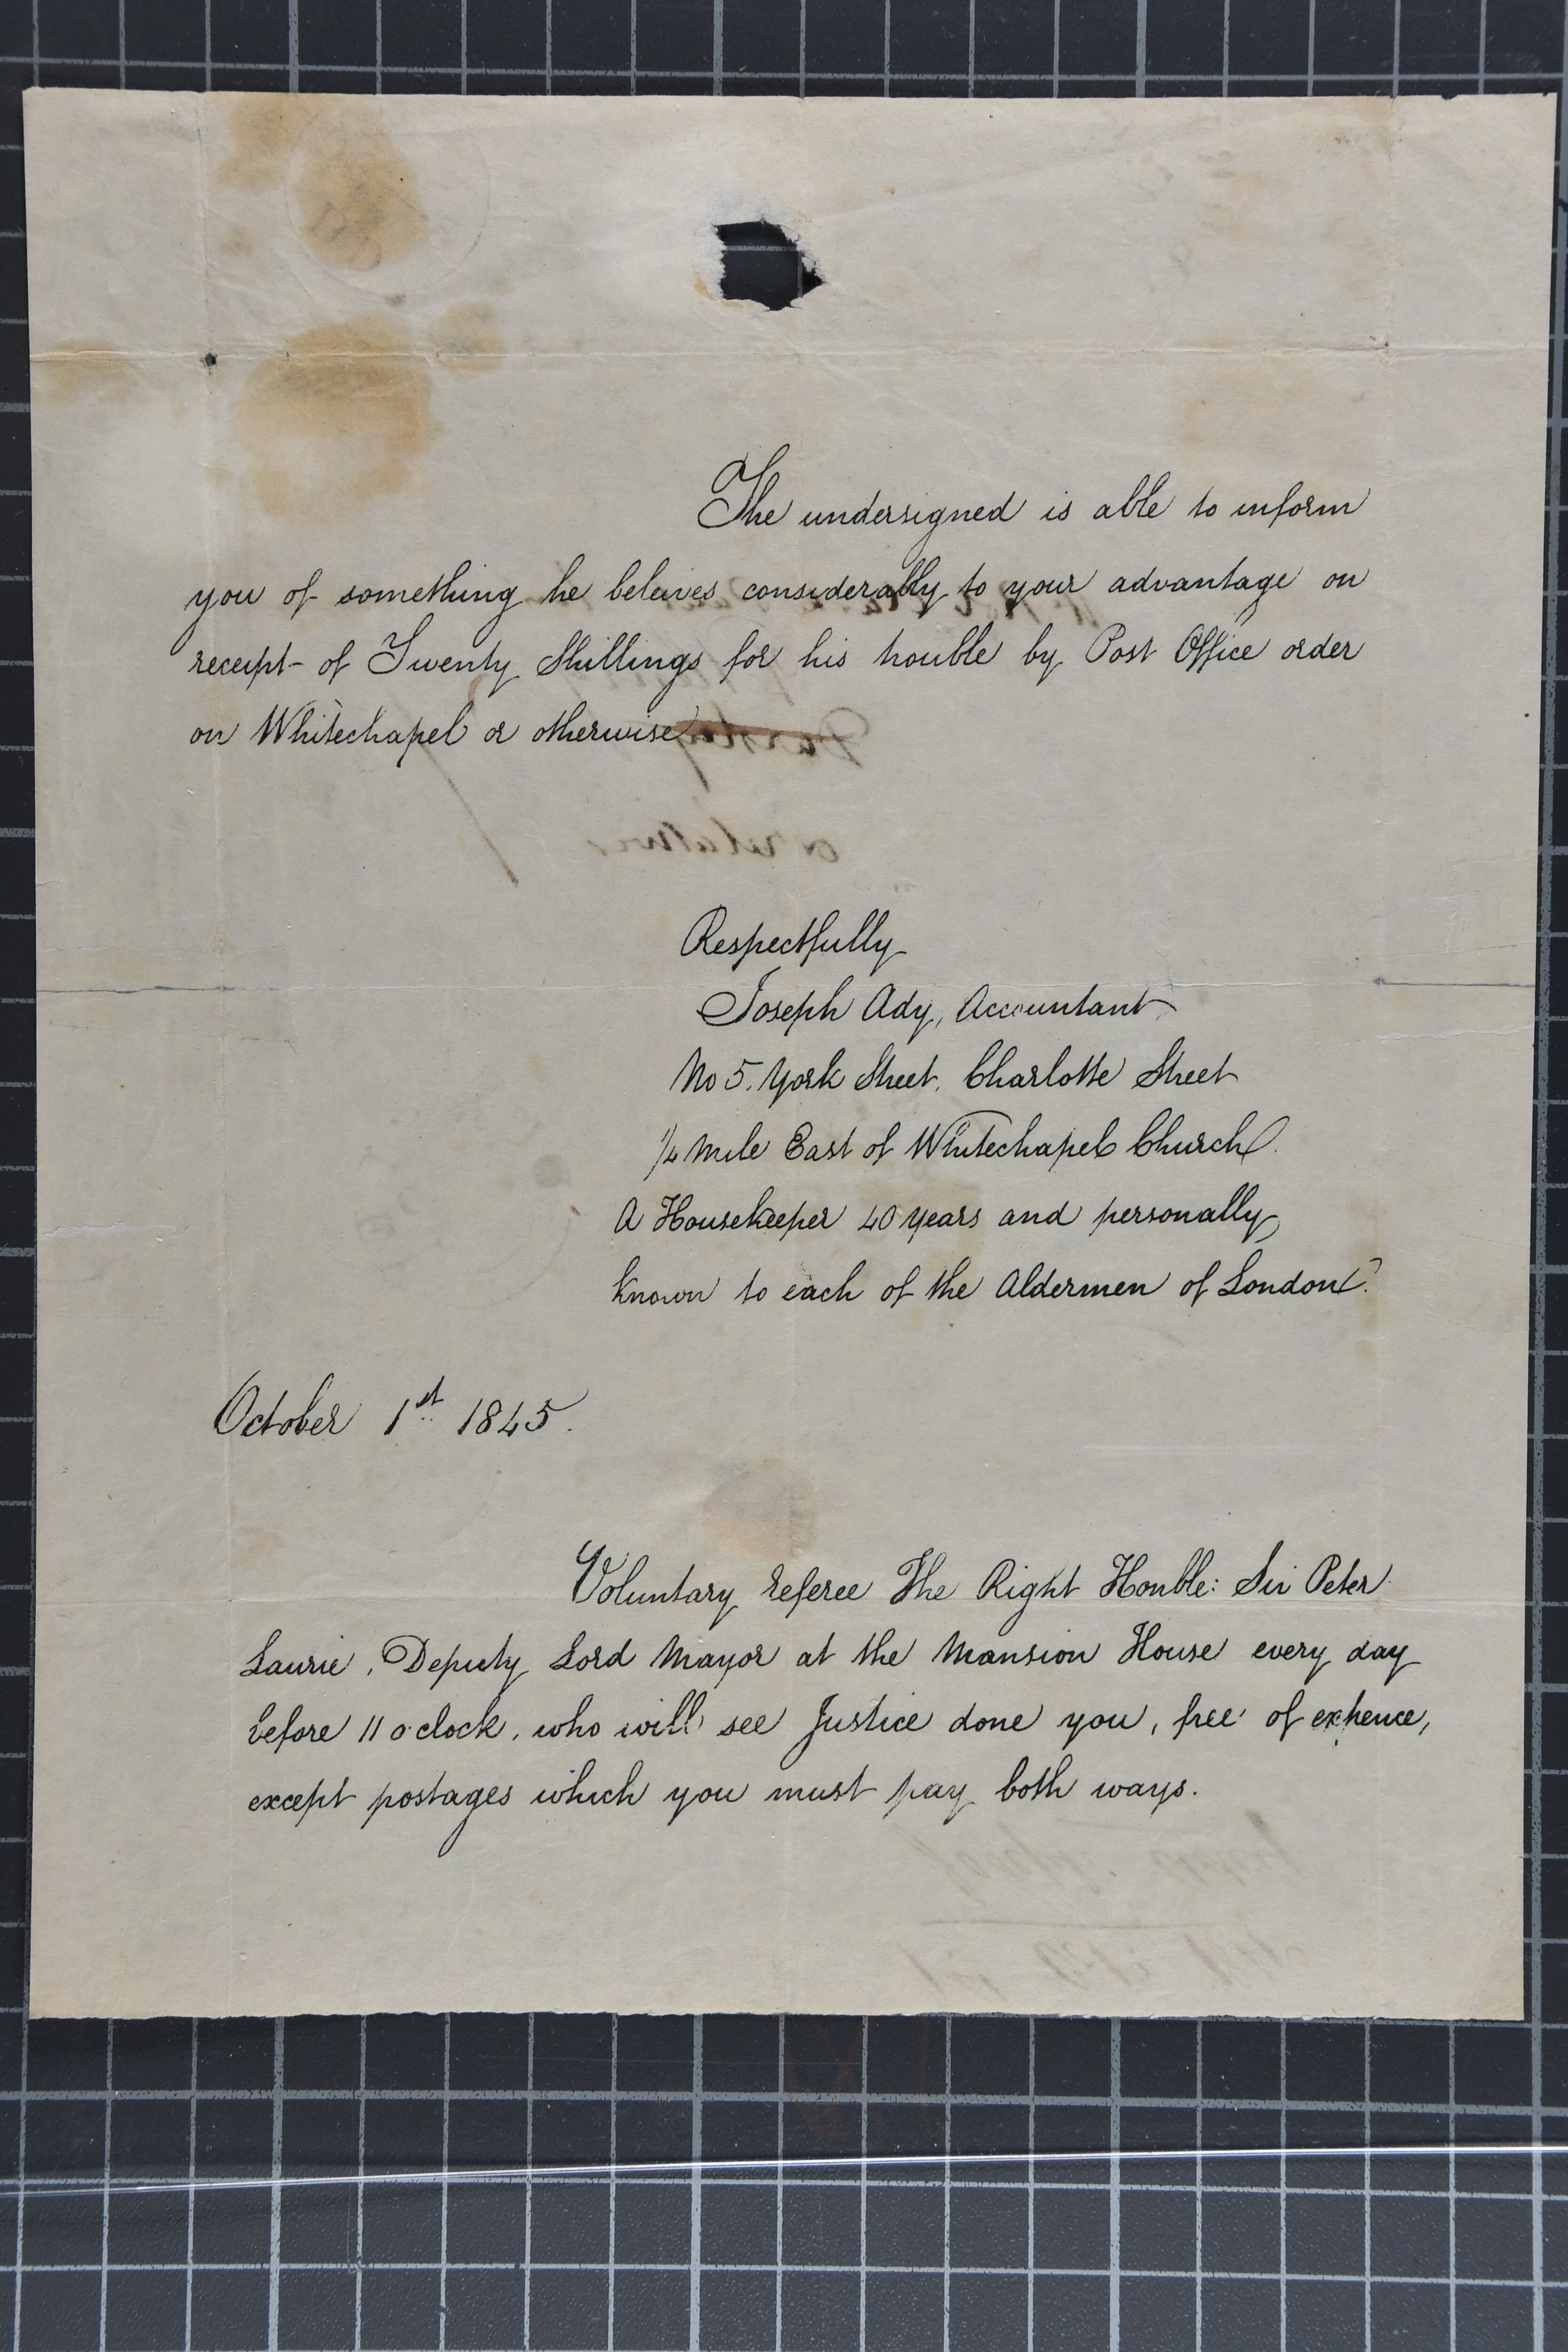 The undersigned is able to inform
you of something he beleives considerally to your advantage on
receipt of Twenty Shillings for his trouble by Post Office order
on Whitechapel or otherwise
Respectfully
Joseph Ady, Accountant
No 5. York Street. Charlotte Street
1/4 Mile East of Whitechapel Church.
A Housekeeper 40 years and personally
known to each of the Aldermen of London.
October 1st 1845.
Voluntary referee The Right Honble: Sir Peter
Laurie, Deputy Lord Mayor at the Mansion House every day
before 11 o'clock, who will see Justice done you, free of expence,
except postages which you must pay both ways.